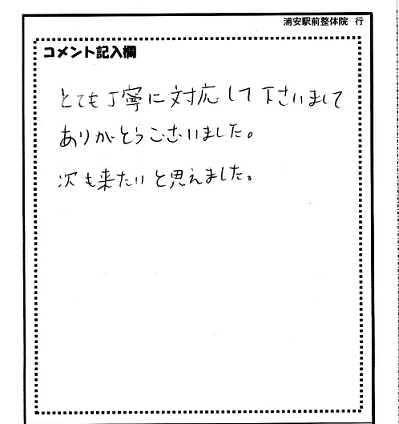 浦安駅前整体院 行
コメント記入欄
とても丁寧に対応して下さいまして
ありがとうございました。
次も来たいと思えました。